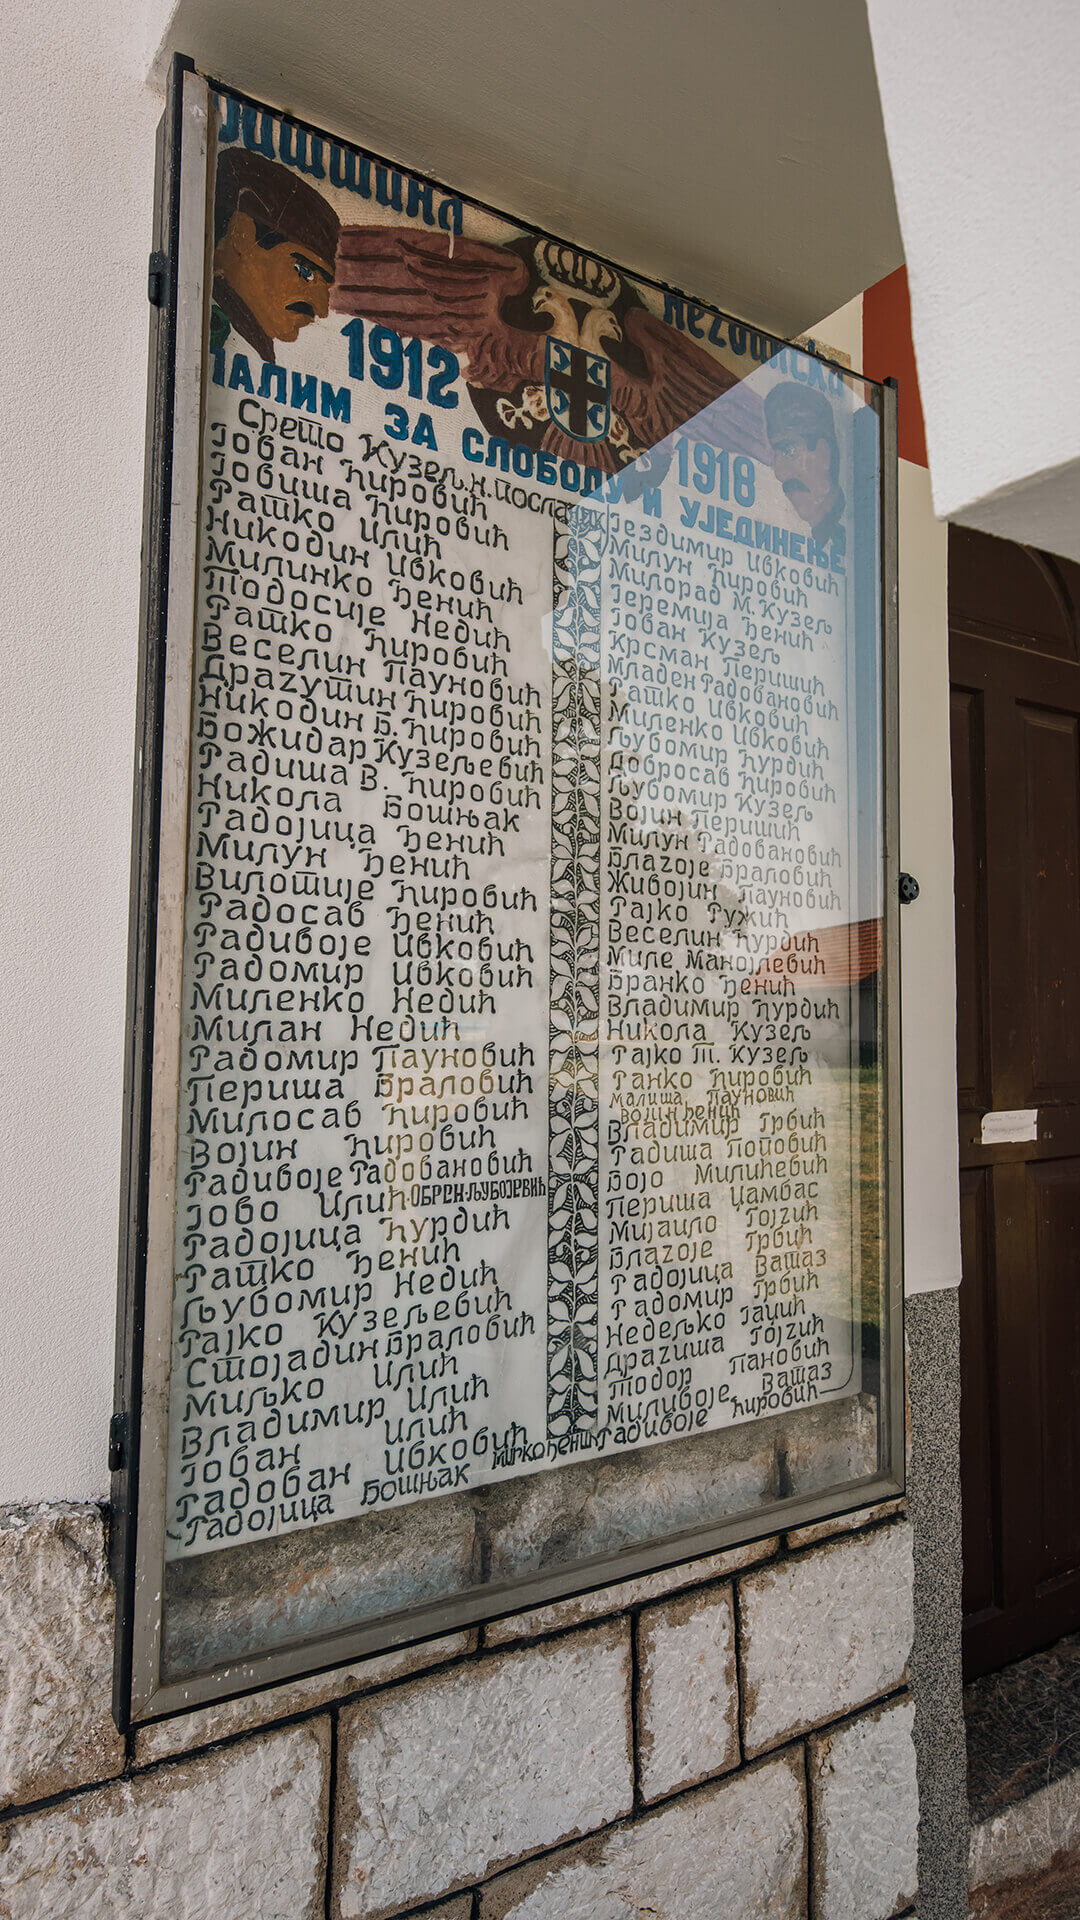 1912
1918
ПАЛИМ ЗА СЛОБОДУ И УЈЕДИЊЕЊЕ
Сретo Кузељ.н.посланик
Јован Ћировић
Јовиша Ћировић
Ратко Илић
Никодин Ивковић
Милинко Ђенић
Тодосије Недић
Ратко Ћировић
Веселин Пауновић
Драгутин Ћировић
Никодин Б. Ћировић
Божидар Кузељевић
Радиша В. Ћировић
Никола Бошњак
Радојица Ђенић
Милун Ђенић
Вилотије Ћировић
Радосав Ђенић
Радивоје Ивковић
Радомир Ивковић
Миленко Недић
Милан Недић
Радомир Пауновић
Периша Браловић
Милосав Ћировић
Војин Ћировић
Радивоје Радовановић
Јово Илић·ОБРЕН·ЉУБОЈЕВИЋ
Радојица Ћурдић
Ратко Ђенић
Љубомир Недић
Рајко Кузељевић
Стојадин Браловић
Миљко Илић
Владимир Илић
Јован Илић
Радован Ивковић
Радојица Бошњак
Мирко Ђенић
Јездимир Ивковић
Милун Ћировић
Милорад М. Кузељ
Јеремија Ђенић
Јован Кузељ
Крсман Перишић
Младен Радовановић
Ратко Ивковић
Миленко Ивковић
Љубомир Ћурдић
Добросав Ћировић
Љубомир Кузељ
Војин Перишић
Милун Радовановић
Благоје Браловић
Живојин Пауновић
Рајко Ружић
Веселин Ћурдић
Миле Манојлевић
Бранко Ђенић
Владимир Ћурдић
Никола Кузељ
Рајко Т. Кузељ
Ранко Ћировић
Малиша Пауновић
Војин Ђенић
Владимир Грбић
Радиша Поповић
Бојо Милићевић
Периша Џамбас
Мијаило Гојгић
Благоје Грбић
Радојица Ваtаз
Радомир Грбић
Недељко Јацић
Драгиша Гојгић
Тодор Пановић
Миливоје Ваtаз
Радивоје Ћировић